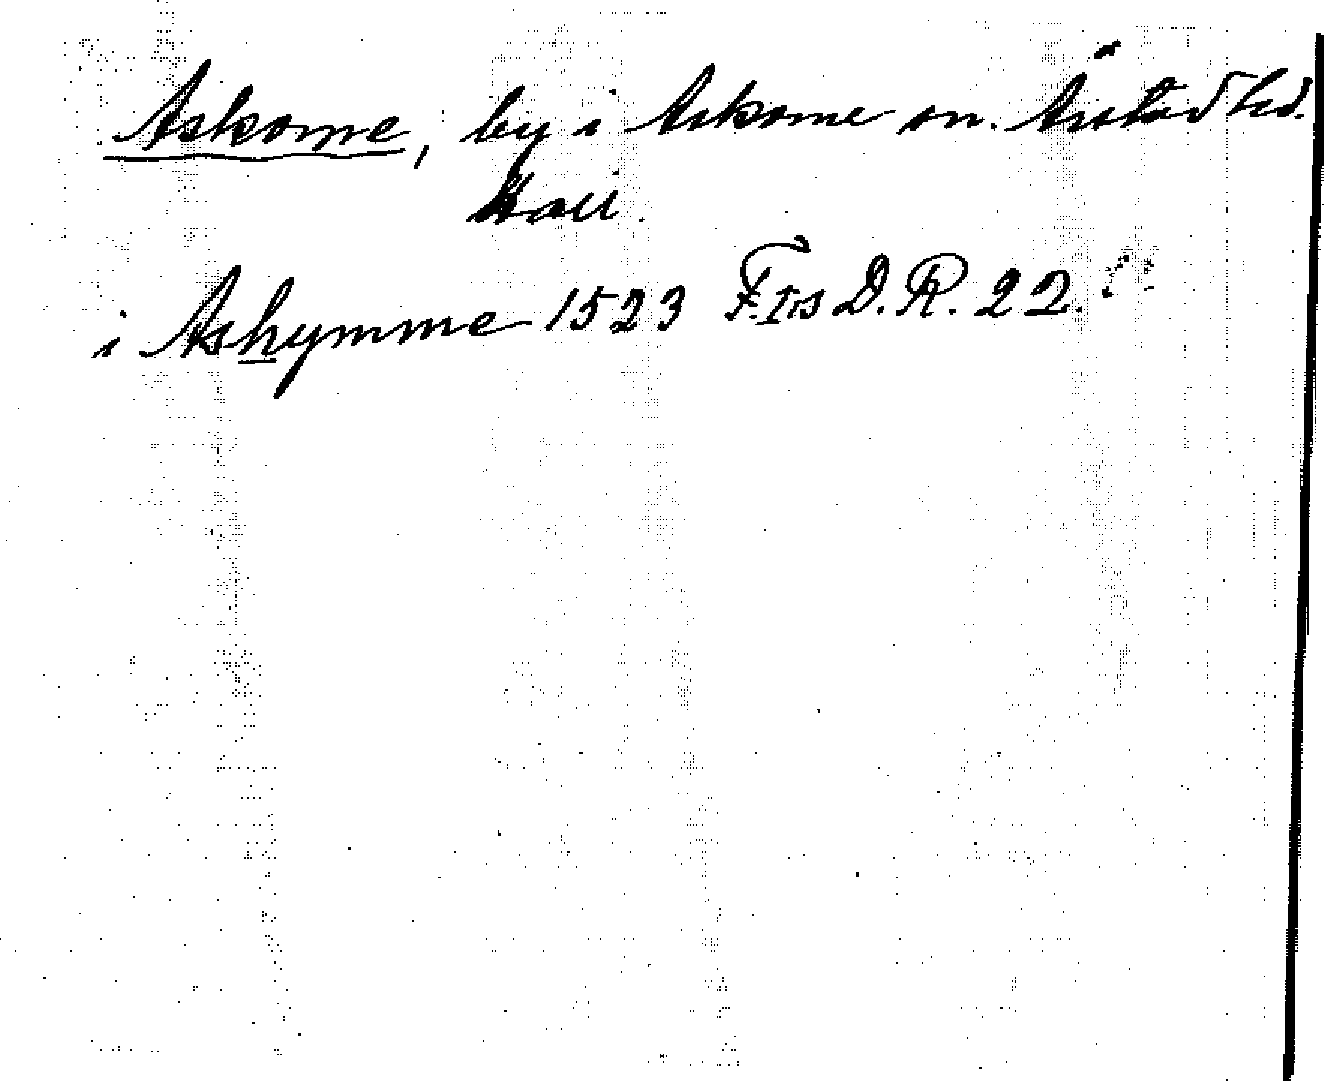 Askome, by i Askome sn. Årstad hd.
Hall.
i Ashymme 1523 F.Is D.R. 22.